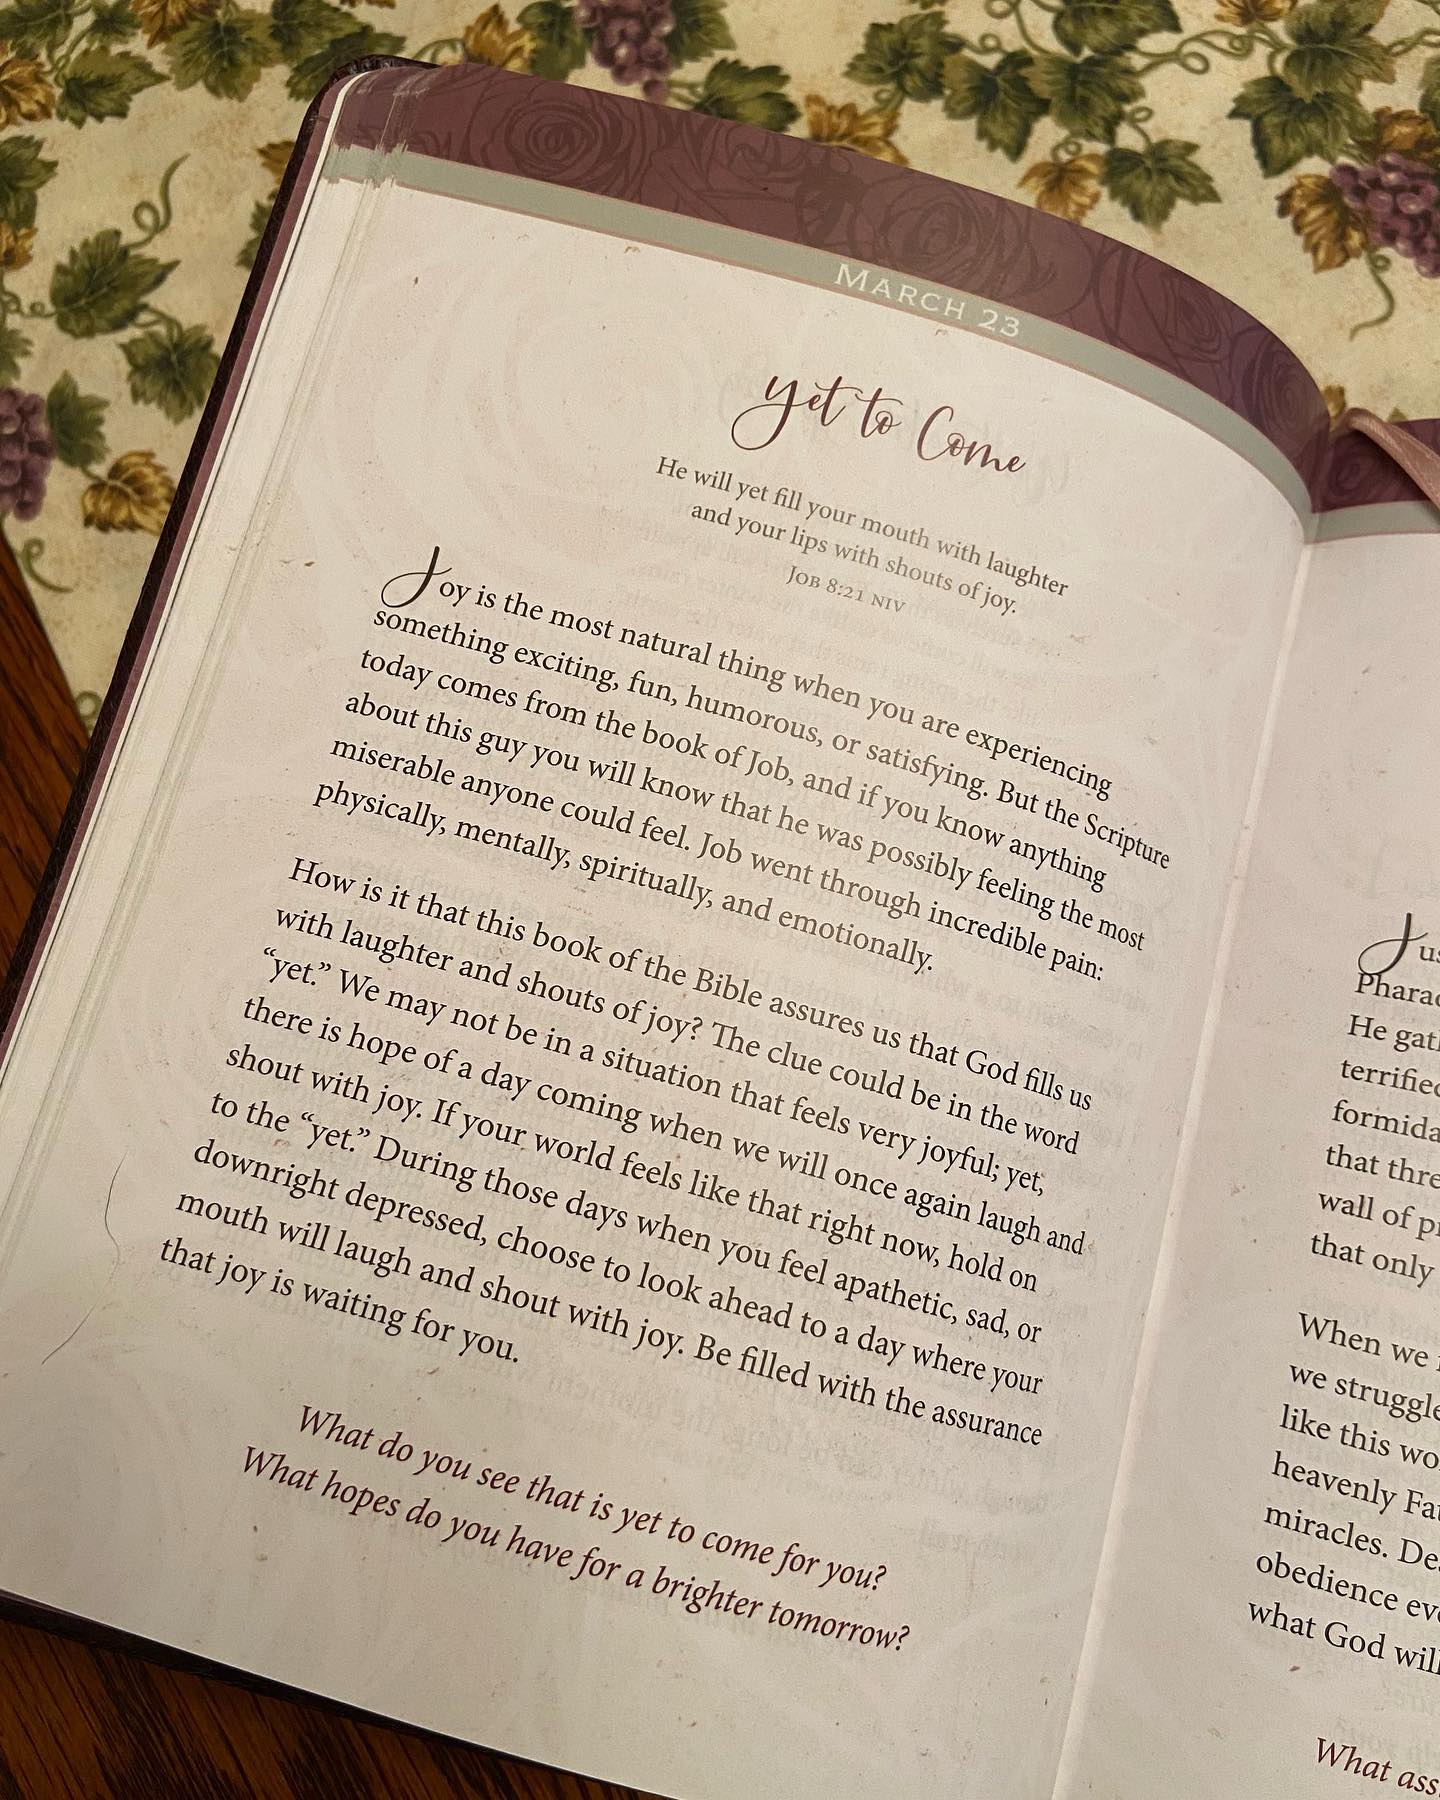 MARCH 23
yet to Come
He will yet fill your mouth with laughter
and your lips with shouts of joy.
JOB 8:21 NIV
Joy is the most natural thing when you are experiencing
something exciting, fun, humorous, or satisfying. But the Scripture
today comes from the book of Job, and if you know anything
about this guy you will know that he was possibly feeling the most
miserable anyone could feel. Job went through incredible pain:
physically, mentally, spiritually, and emotionally.
How is it that this book of the Bible assures us that God fills us
with laughter and shouts of joy? The clue could be in the word
“yet.” We may not be in a situation that feels very joyful; yet,
there is hope of a day coming when we will once again laugh and
shout with joy. If your world feels like that right now, hold on
to the “yet.” During those days when you feel apathetic, sad, or
downright depressed, choose to look ahead to a day where your
mouth will laugh and shout with joy. Be filled with the assurance
that joy is waiting for you.
What do you see that is yet to come for you?
What hopes do you have for a brighter tomorrow?
He
that
wall of
that only
When we
we
like this
heavenly
miracles.
obedience
what God will
What